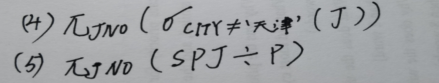 (4) π JNO (σ CITY≠'天津' (J))
(5) π JNO (SPJ ÷ P)